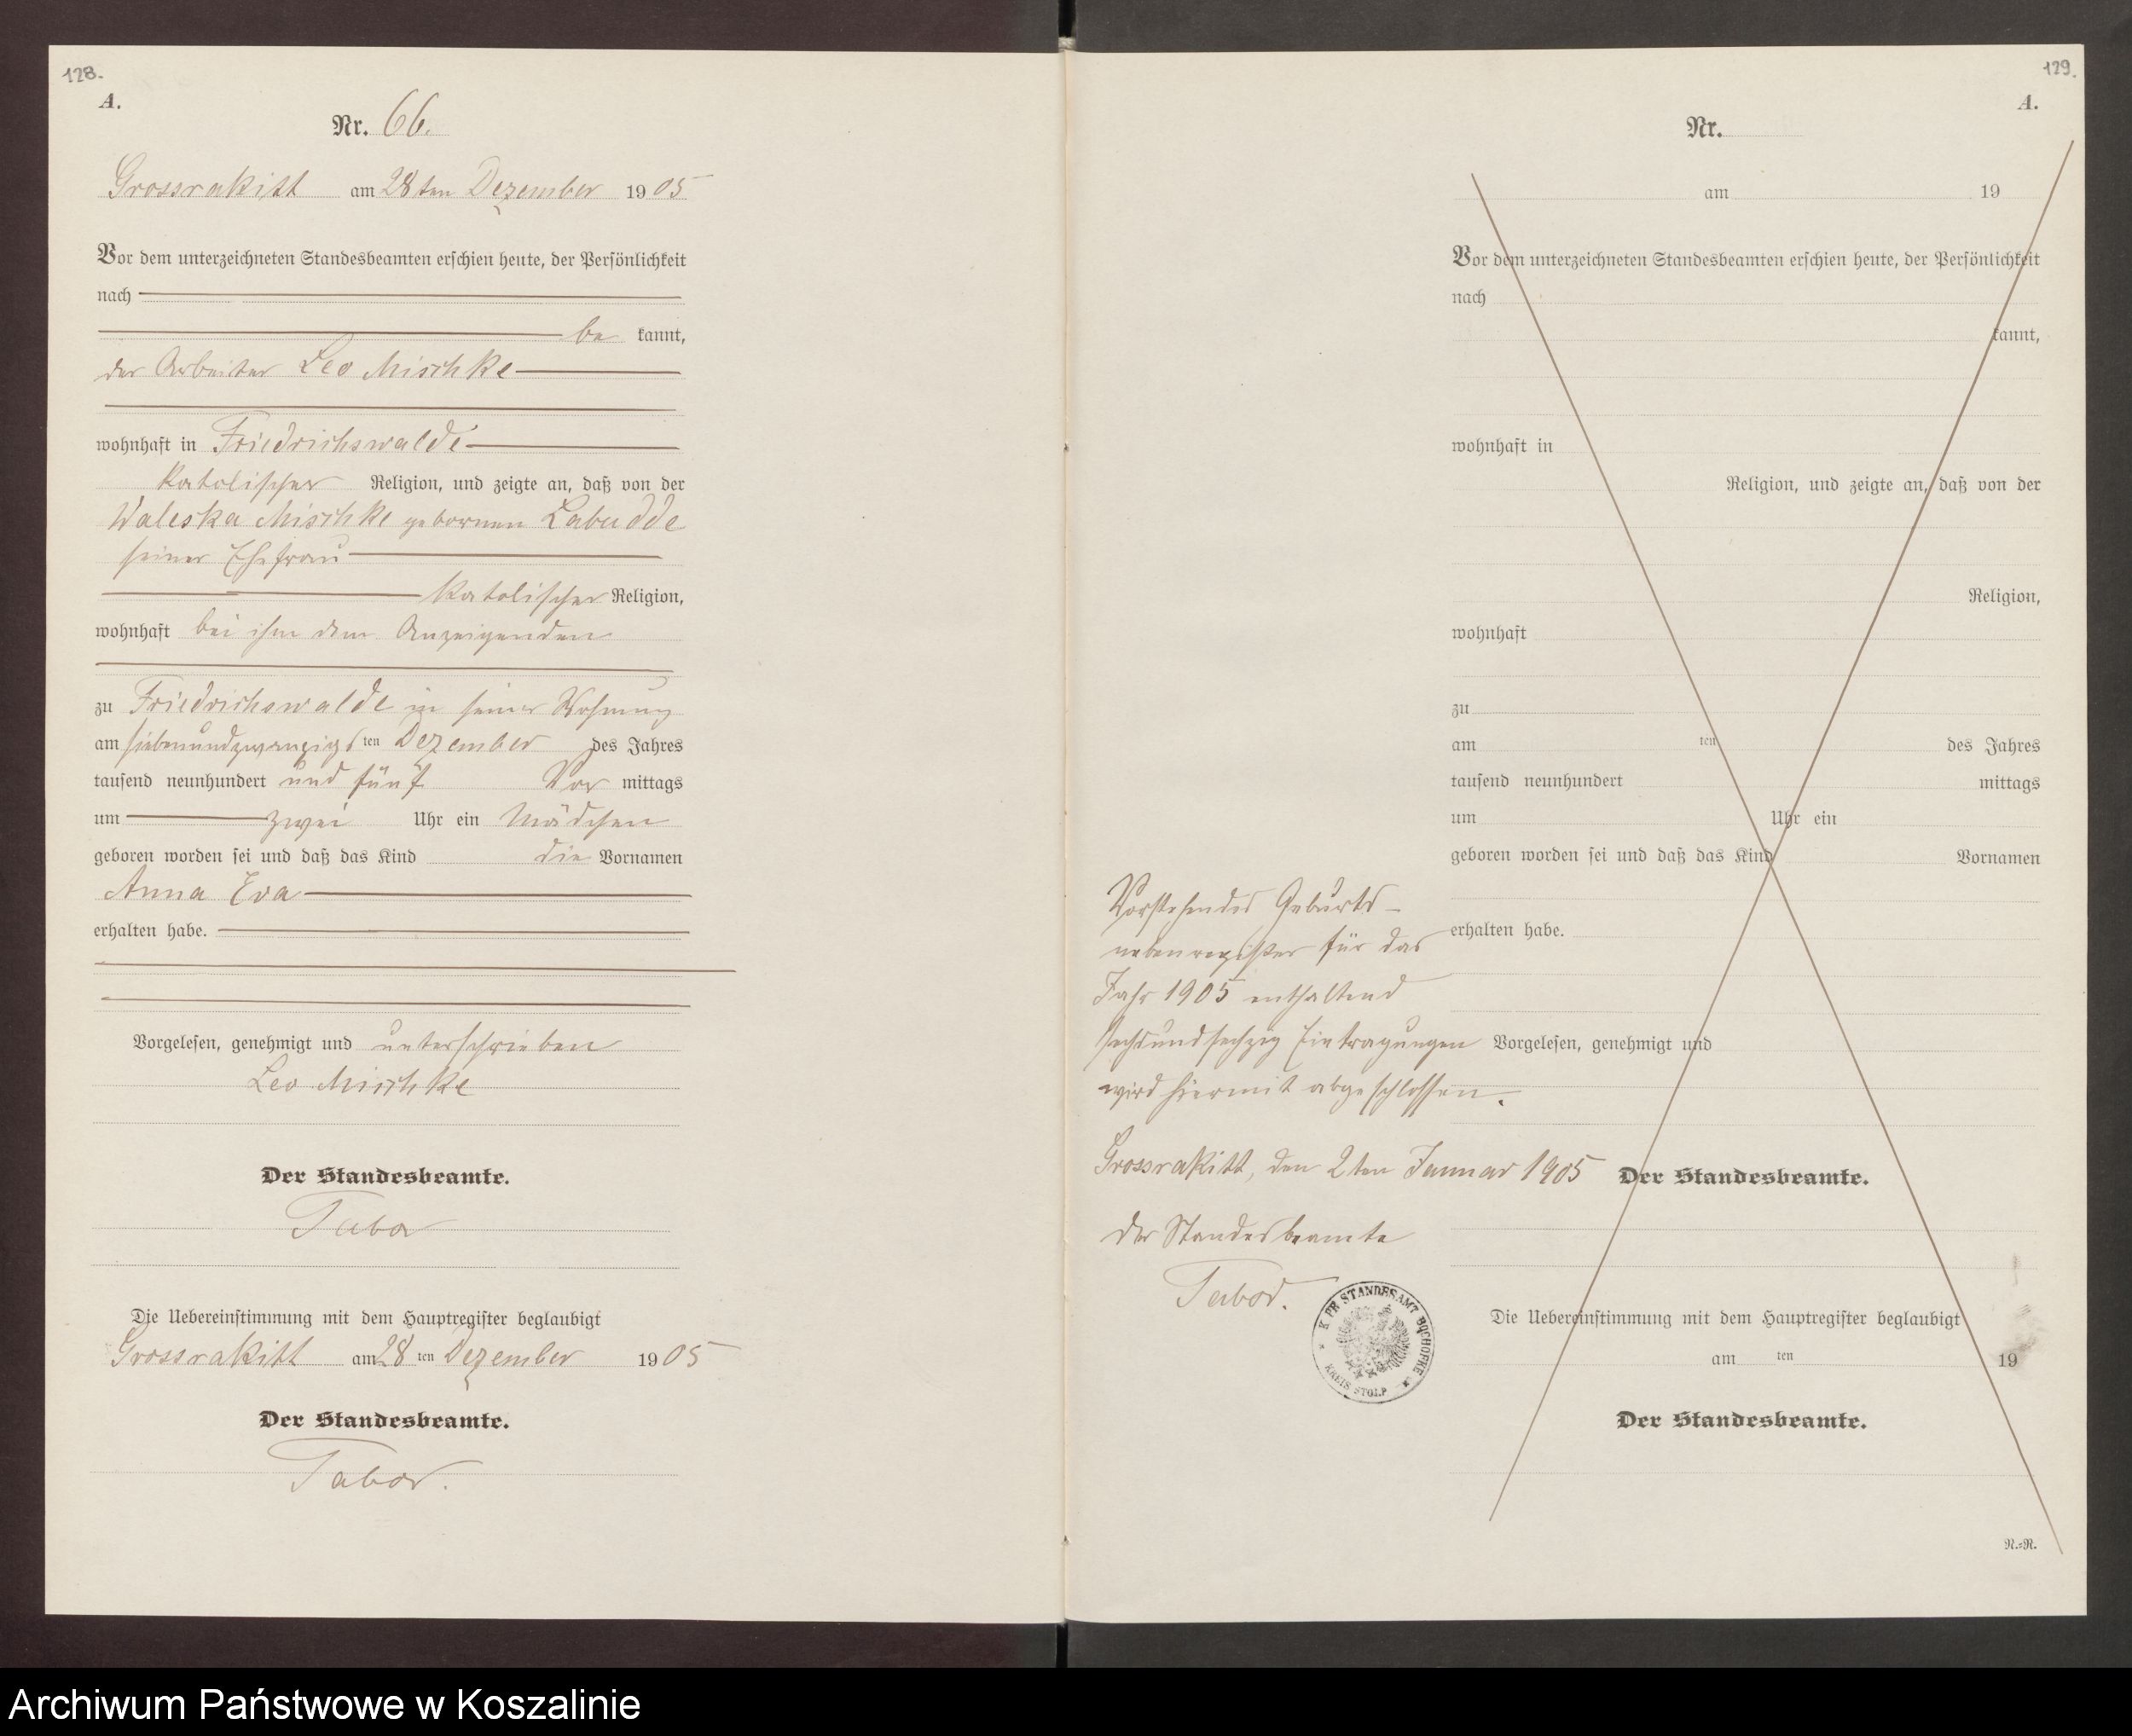 128.
A.
Nr. 66.
Grossrakitt am 28ten Dezember 1905
Vor dem unterzeichneten Standesbeamten erschien heute, der Persönlichkeit
nach
be kannt,
der Arbeiter Leo Mischke
wohnhaft in Friedrichswalde
katolischer Religion, und zeigte an, daß von der
Waleska Mischke geborenen Labudde
seiner Ehefrau
katolischer Religion,
wohnhaft bei ihm dem Anzeigenden
zu Friedrichswalde in seiner Wohnung
am siebenundzwanzigsten Dezember des Jahres
tausend neunhundert und fünf Vor mittags
um zwei Uhr ein Mädchen
geboren worden sei und daß das Kind die Vornamen
Anna Eva
erhalten habe.
Vorgelesen, genehmigt und unterschrieben
Leo Mischke
Der Standesbeamte.
Tabor
Die Uebereinstimmung mit dem Hauptregister beglaubigt
Grossrakitt am 28 ten Dezember 1905
Der Standesbeamte.
Tabor.
129.
A.
Nr.
am 19
Vor dem unterzeichneten Standesbeamten erschien heute, der Persönlichkeit
nach
kannt,
wohnhaft in
Religion, und zeigte an, daß von der
Religion,
wohnhaft
zu
am ten des Jahres
tausend neunhundert mittags
um Uhr ein
geboren worden sei und daß das Kind Vornamen
erhalten habe.
Vorgelesen, genehmigt und
Der Standesbeamte.
Die Uebereinstimmung mit dem Hauptregister beglaubigt
am ten 19
Der Standesbeamte.
N.-R.
Vorstehendes Geburts-
nebenregister für das
Jahr 1905 enthaltend
sechsundsechzig Eintragungen
wird hiermit abgeschlossen.
Grossrakitt, den 2ten Januar 1905
Der Standesbeamte
Tabor.
K. PR. STANDESAMT BUCHOFKE
KREIS STOLP
Archiwum Państwowe w Koszalinie